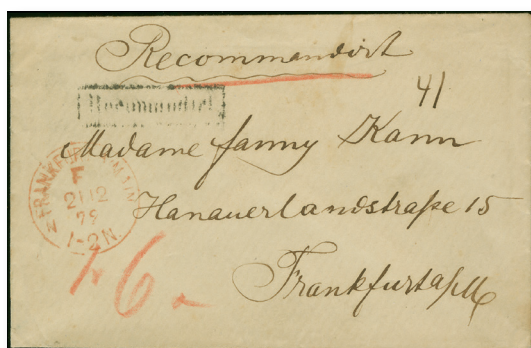 Recommandirt
Recomandirt
41
Madame Fanny Kann
Hanauerlandstraße 15
Frankfurt a/M
FRANKFURT MAIN
2 12
79
1-2N.
6